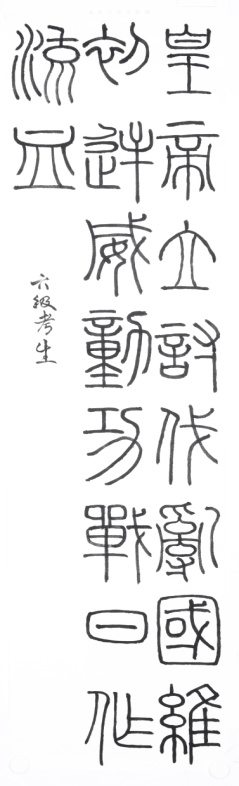 皇帝立討伐亂國維
初逆威動功戰日作
流血
六級考生